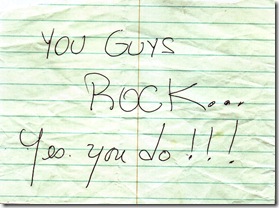 YOU GUYS
ROCK...
Yes. you do!!!